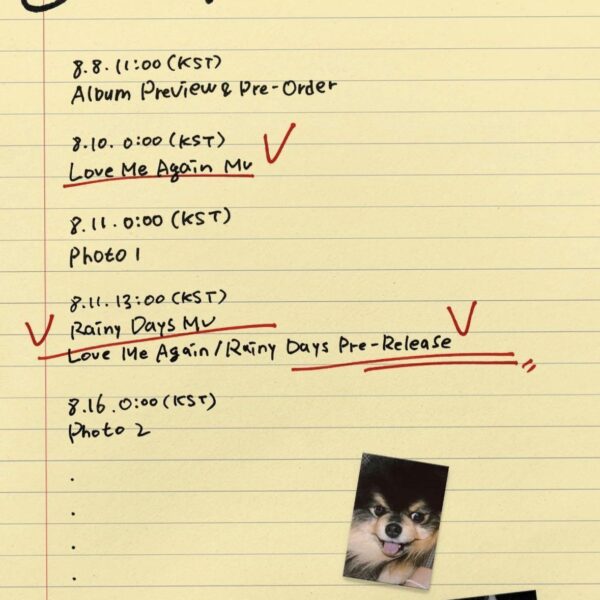 8.8. 11:00 (KST)
Album Preview & Pre-Order
8.10. 0:00 (KST)
Love Me Again Mv
8.11. 0:00 (KST)
Photo 1
8.11. 13:00 (KST)
Rainy Days Mv
Love Me Again/Rainy Days Pre-Release
8.16. 0:00 (KST)
Photo 2
.
.
.
.